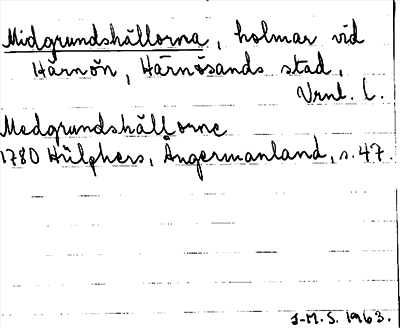 Midgrundshällorna, holmar vid
Härnön, Härnösands stad,
Vrnl. l.
Medgrundshällorne
1780 Hülphers, Ångermanland, s. 47.
J-M. S. 1963.